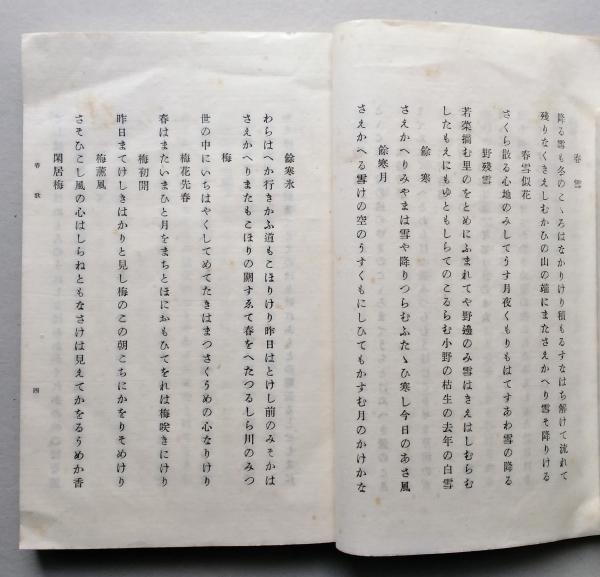 春雪
降る雪も冬のこゝろはなかりけり積もるすなはち解けて流れて
残りなくきえしむかひの山の端にまたさえかへり雪そ降りける
春雪似花
さくら散る心地のみしてうす月夜くもりもはてすあわ雪の降る
野残雪
若菜摘む里のをとめにふまれてや野邊のみ雪はきえはしむらむ
したもえにもゆともしらてのこるらむ小野の枯生の去年の白雪
餘寒
さえかへりみやまは雪や降りつらむふたゝひ寒し今日のあさ風
餘寒月
さえかへる雪けの空のうすくもにしひてもかすむ月のかけかな
餘寒氷
わらはへか行きかふ道もこほりけり昨日はとけし前のみそかは
さえかへりまたもこほりの關すゑて春をへたつるしら川のみつ
梅
世の中にいちはやくしてめてたきはまつさくうめの心なりけり
梅花先春
春はまたいまひと月をまちとほにおもひてをれは梅咲きにけり
梅初開
昨日まてけしきはかりと見し梅のこの朝こちにかをりそめけり
梅薫風
さそひこし風の心はしらねともなさけは見えてかをるうめか香
閑居梅
春歌
四